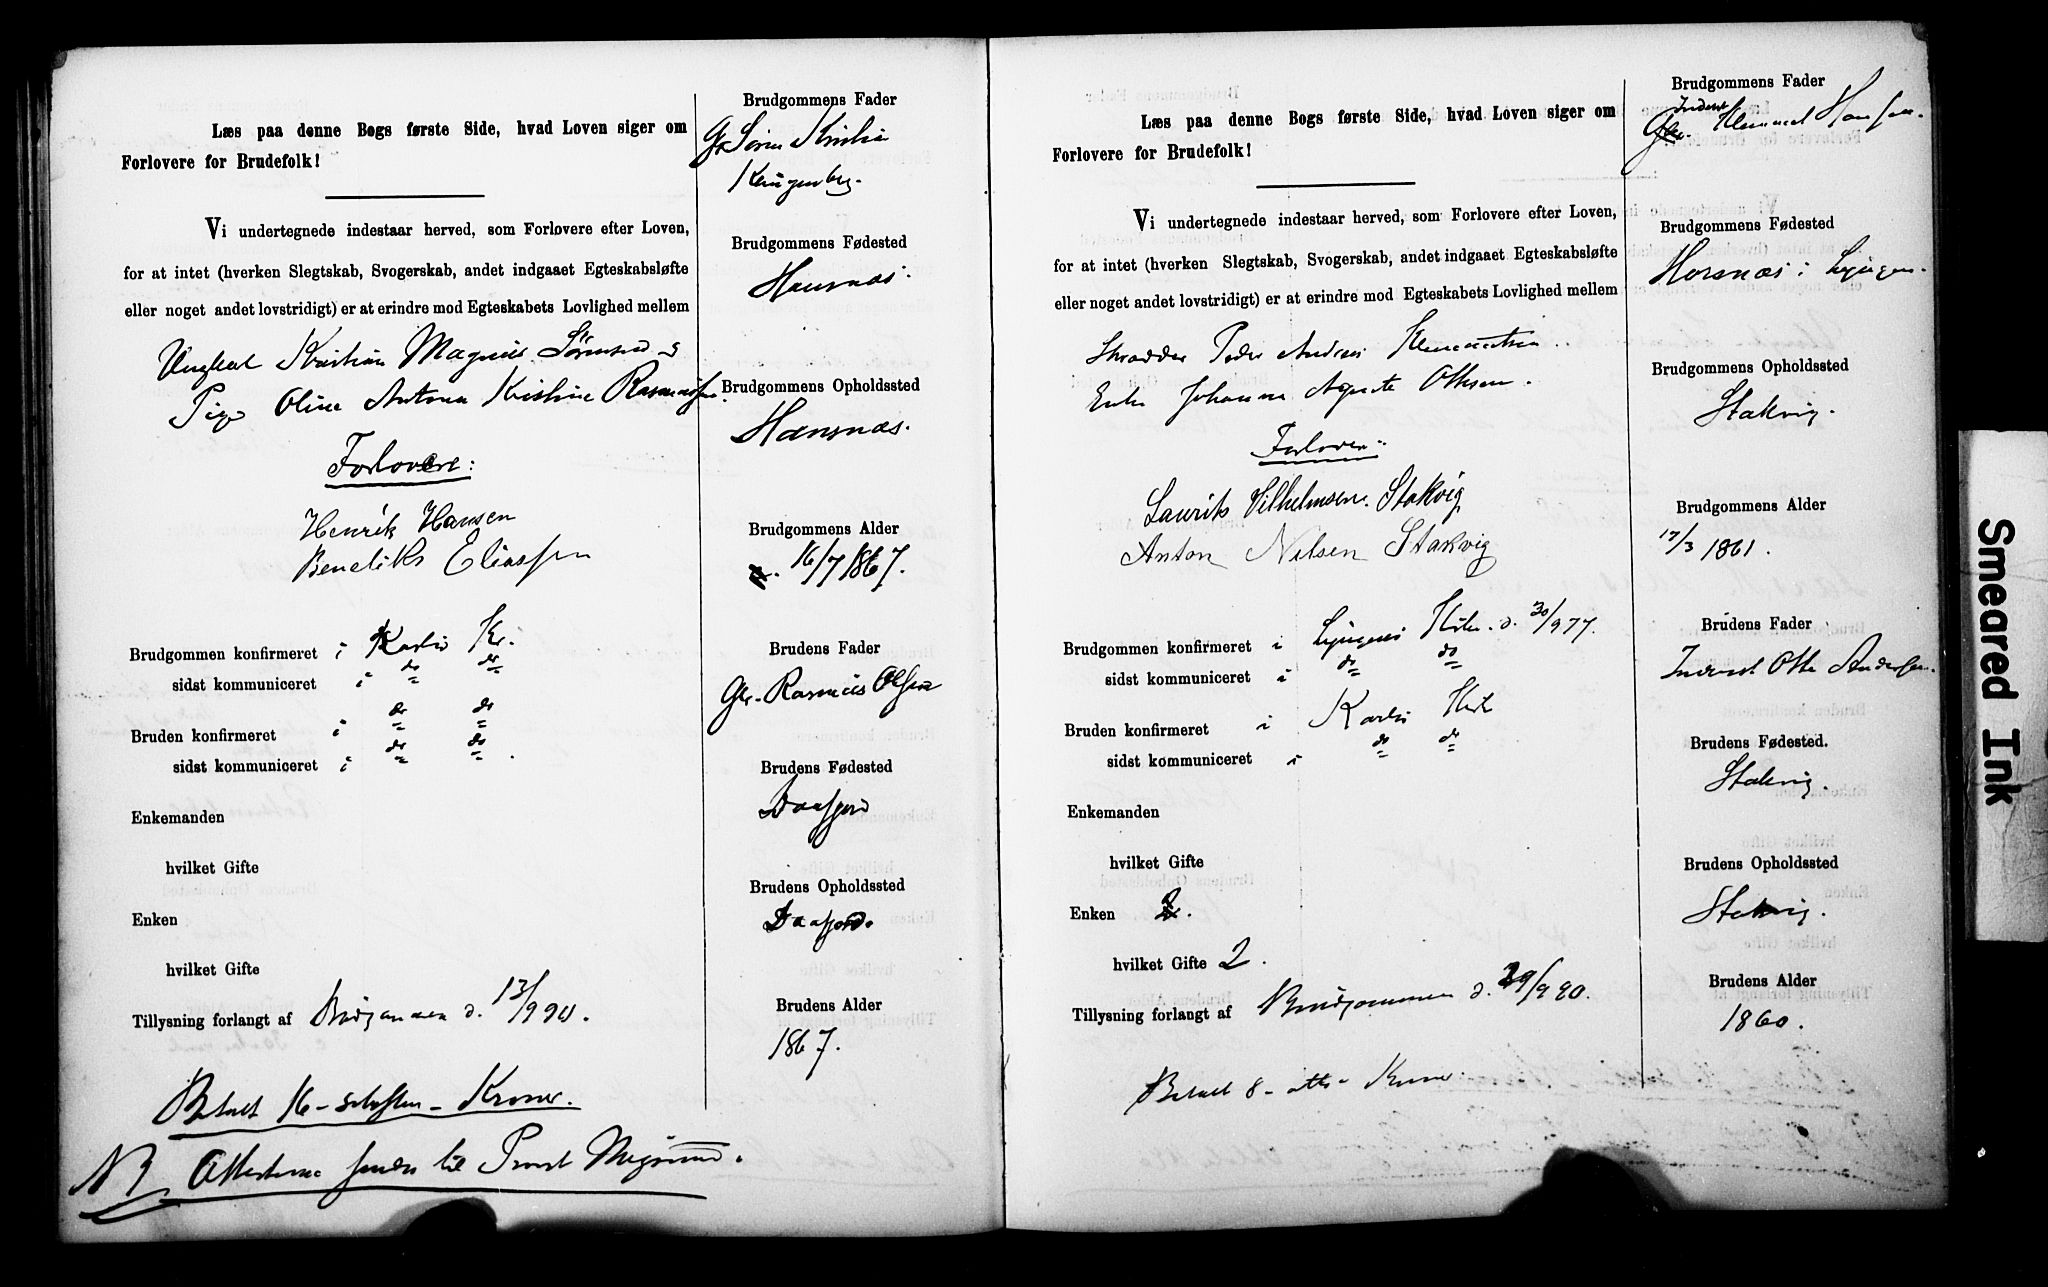 Læs paa denne Bogs første Side, hvad Loven siger om
Forlovere for Brudefolk!
Vi undertegnede indestaar herved, som Forlovere efter Loven,
for at intet (hverken Slegtskab, Svogerskab, andet indgaaet Egteskabsløfte
eller noget andet lovstridigt) er at erindre mod Egteskabets Lovlighed mellem
Ungkarl Kristian Magnus Sørensen
Pige Oline Antona Kristine Rasmussen.
Forlovere:
Henrik Hansen
Bendiks Eliassen
Brudgommen konfirmeret i Karlsø Kr.
sidst kommuniceret i do do
Bruden konfirmeret i do do
sidst kommuniceret i do do.
Enkemanden
hvilket Gifte
Enken
hvilket Gifte
Tillysning forlangt af Brudgommen d. 13/9 90.
Betalt 16 - seksten - Kroner.
NB Attesterne sendes til Provst
Brudgommens Fader
Søren Kristian
Klingenberg.
Brudgommens Fødested
Hansnæs.
Brudgommens Opholdssted
Hansnæs.
Brudgommens Alder
16/7 1867.
Brudens Fader
Gbr. Rasmus Olsen
Brudens Fødested
Daafjord
Brudens Opholdssted
Daafjord.
Brudens Alder
1867.
Læs paa denne Bogs første Side, hvad Loven siger om
Forlovere for Brudefolk!
Vi undertegnede indestaar herved, som Forlovere efter Loven,
for at intet (hverken Slegtskab, Svogerskab, andet indgaaet Egteskabsløfte
eller noget andet lovstridigt) er at erindre mod Egteskabets Lovlighed mellem
Skrædder Peder Andreas
Enke Johanna Agnete Ottesen.
Forlovere:
Laurits Vilhelmsen. Stakvig
Anton Nilsen Stakvig
Brudgommen konfirmeret i Lyngens Kirke d. 30/9 77.
sidst kommuniceret i do do
Bruden konfirmeret i Karlsø Kirke
sidst kommuniceret i do do
Enkemanden
hvilket Gifte
Enken
hvilket Gifte 2.
Tillysning forlangt af Brudgommen d. 29/9 90.
Betalt 8 - otte - Kroner.
Brudgommens Fader
Inderst Hansen.
Brudgommens Fødested
Horsnæs i Lyngen.
Brudgommens Opholdssted
Stakvig.
Brudgommens Alder
17/3 1861.
Brudens Fader
Inderst Otte Andersen.
Brudens Fødested.
Stakvig.
Brudens Opholdssted
Stakvig.
Brudens Alder
1860.
Smeared Ink